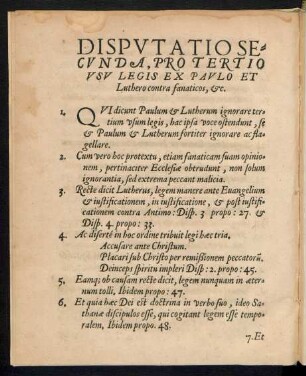 DISPVTATIO SE-
CVNDA, PRO TERTIO
VSV LEGIS EX PAVLO ET
Luthero contra fanaticos, &c.
1. QVI dicunt Paulum & Lutherum ignorare ter
tium vsum legis, hac ipsa voce ostendunt, se
& Paulum & Lutherum fortiter ignorare ac fla-
gellare.
2. Cum vero hoc protextu, etiam fanaticam suam opinio-
nem, pertinaciter Ecclesiæ obtrudunt, non solum
ignorantia, sed extrema peccant malicia.
3. Recte dicit Lutherus, legem manere ante Euangelium
& iustificationem, in iustificatione, & post iustifi-
cationem contra Antino: Disp. 3 propo: 27. &
Disp. 4. propo: 33.
4. Ac diserte in hoc ordine tribuit legi hæc tria,
Accusare ante Christum.
Placari sub Christo per remissionem peccatorū.
Deinceps spiritu impleri Disp: 2. propo: 45.
5. Eamq; ob causam recte dicit, legem nunquam in æter-
num tolli, Ibidem propo: 47.
6. Et quia hæc Dei est doctrina in verbo suo, ideo Sa-
thanæ discipulos esse, qui cogitant legem esse tempo-
ralem, Ibidem propo. 48.
7. Et